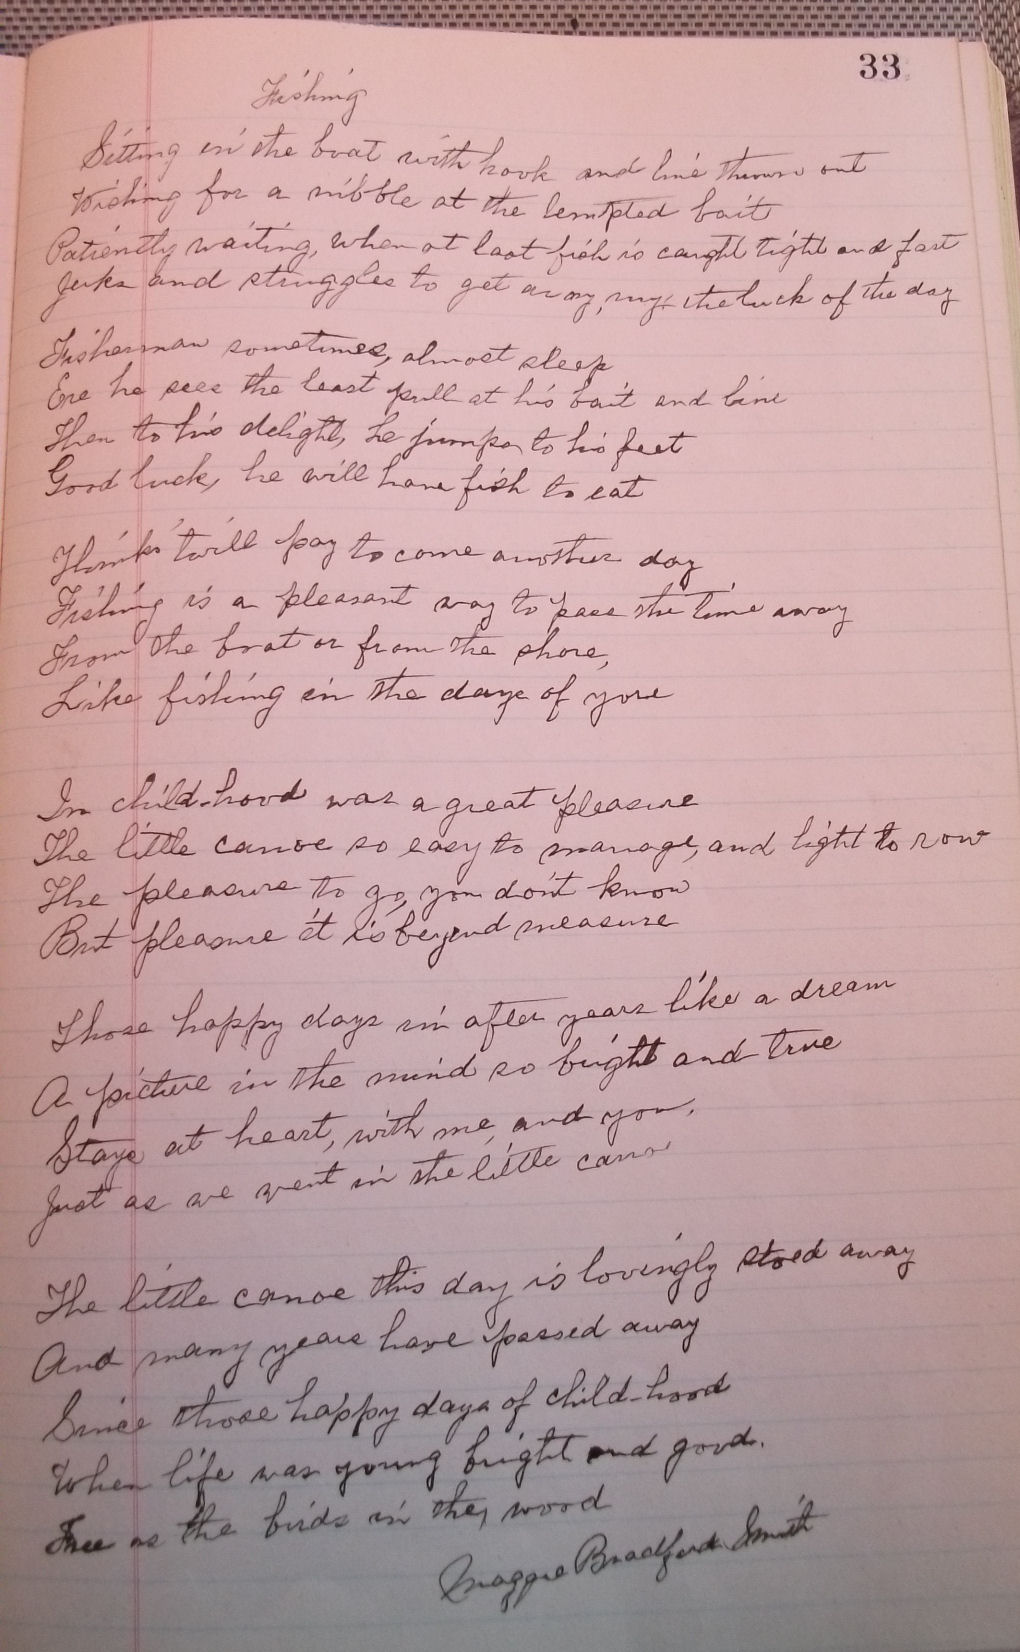 33
Fishing
Sitting in the boat with hook and line thrown out
Wishing for a nibble at the tempted bait
Patiently waiting, when at last fish is caught tight and fast
Jerks and struggles to get away, my, the luck of the day
Fisherman sometimes, almost sleep
Ere he sees the least pull at his bait and line
Then to his delight, he jumps to his feet
Good luck, he will have fish to eat
Thinks 'twill pay to come another day
Fishing is a pleasant way to pass the time away
From the boat or from the shore,
Like fishing in the days of yore
In child-hood was a great pleasure
The little canoe so easy to manage, and light to row
The pleasure to go, you don't know
But pleasure it is beyond measure
Those happy days in after years like a dream
A picture in the mind so bright and true
Stays at heart, with me, and you.
Just as we went in the little canoe
The little canoe this day is lovingly stoed away
And many years have passed away
Since those happy days of child-hood
When life was young bright and good.
Free as the birds in the wood
Maggie Bradford Smith